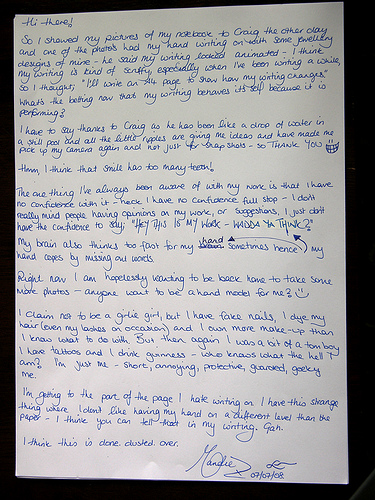 Hi there!
So I showed my pictures of my notebook to Craig the other day
and one of the photos had my hand writing on with some jewellery
designs of mine - he said my writing looked animated - I think
my writing is kind of scruffy, especially when I've been writing a while,
So I thought, "I'll write an A4 page to show how my writing changes"
Whats the betting now that my writing behaves its self because it is
performing?
I have to say thanks to Craig as he has been like a drop of water in
a still pool and all the little ripples are giving me ideas and have made me
pick up my camera again and not just for snap shots - so THANK YOU
Hmm, I think that smile has too many teeth!
The one thing I've always been aware of with my work is that I have
no confidence with it - heck I have no confidence full stop - I dont
really mind people having opinions on my work, or suggestions, I just dont
have the confidence to say; "HEY THIS IS MY WORK - WADDA YA THINK?"
My brain also thinks too fast for my hand sometimes hence my
hand copes by missing out words
Right now I am hopelessly wanting to be back home to take some
more photos - anyone want to be a hand model for me?
I claim not to be a girlie girl, but I have fake nails, I dye my
hair (even my lashes on occasion) and I own more make-up than
I know what to do with. But then again I was a bit of a tom boy
I have tattoos and I drink guinness - who knows what the hell I
am? I'm just me - short, annoying, protective, guarded, geeky
me.
I'm getting to the part of the page I hate writing on I have this strange
thing where I dont like having my hand on a different level than the
paper - I think you can tell that in my writing. Gah.
I think this is done. dusted. over.
Mandie
07/07/08